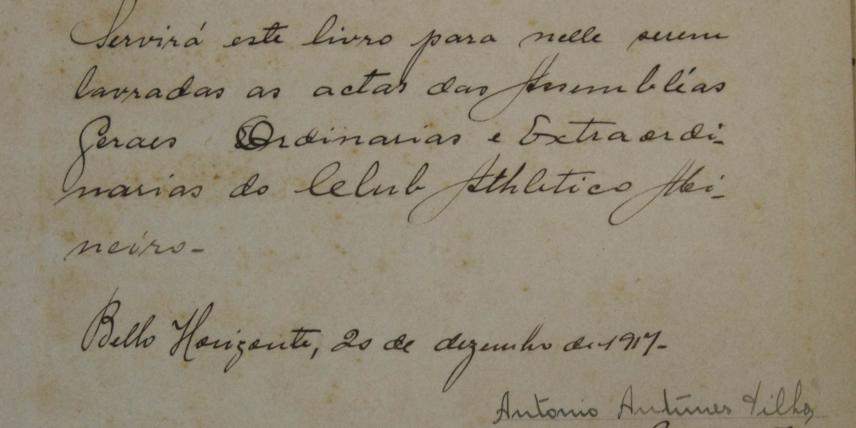 Servirá este livro para nelle serem
lavradas as actas das Assembléas
Geraes Ordinarias e Extraordi-
narias do Club Athletico Mi-
neiro-
Bello Horizonte, 20 de dezembro de 1917-
Antonio Antunes Filho,